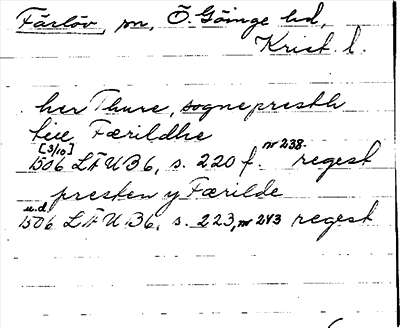 Färlöv, sn, Ö. Göinge hd,
Krist. l.
her Thure, sognepresth
Færildhe
[3/10] nr 238.
1506 LÄUB6, s. 220 f. regest
presten y Færilde
u.d.
1506 LÄUB6, s. 223, nr 243 regest